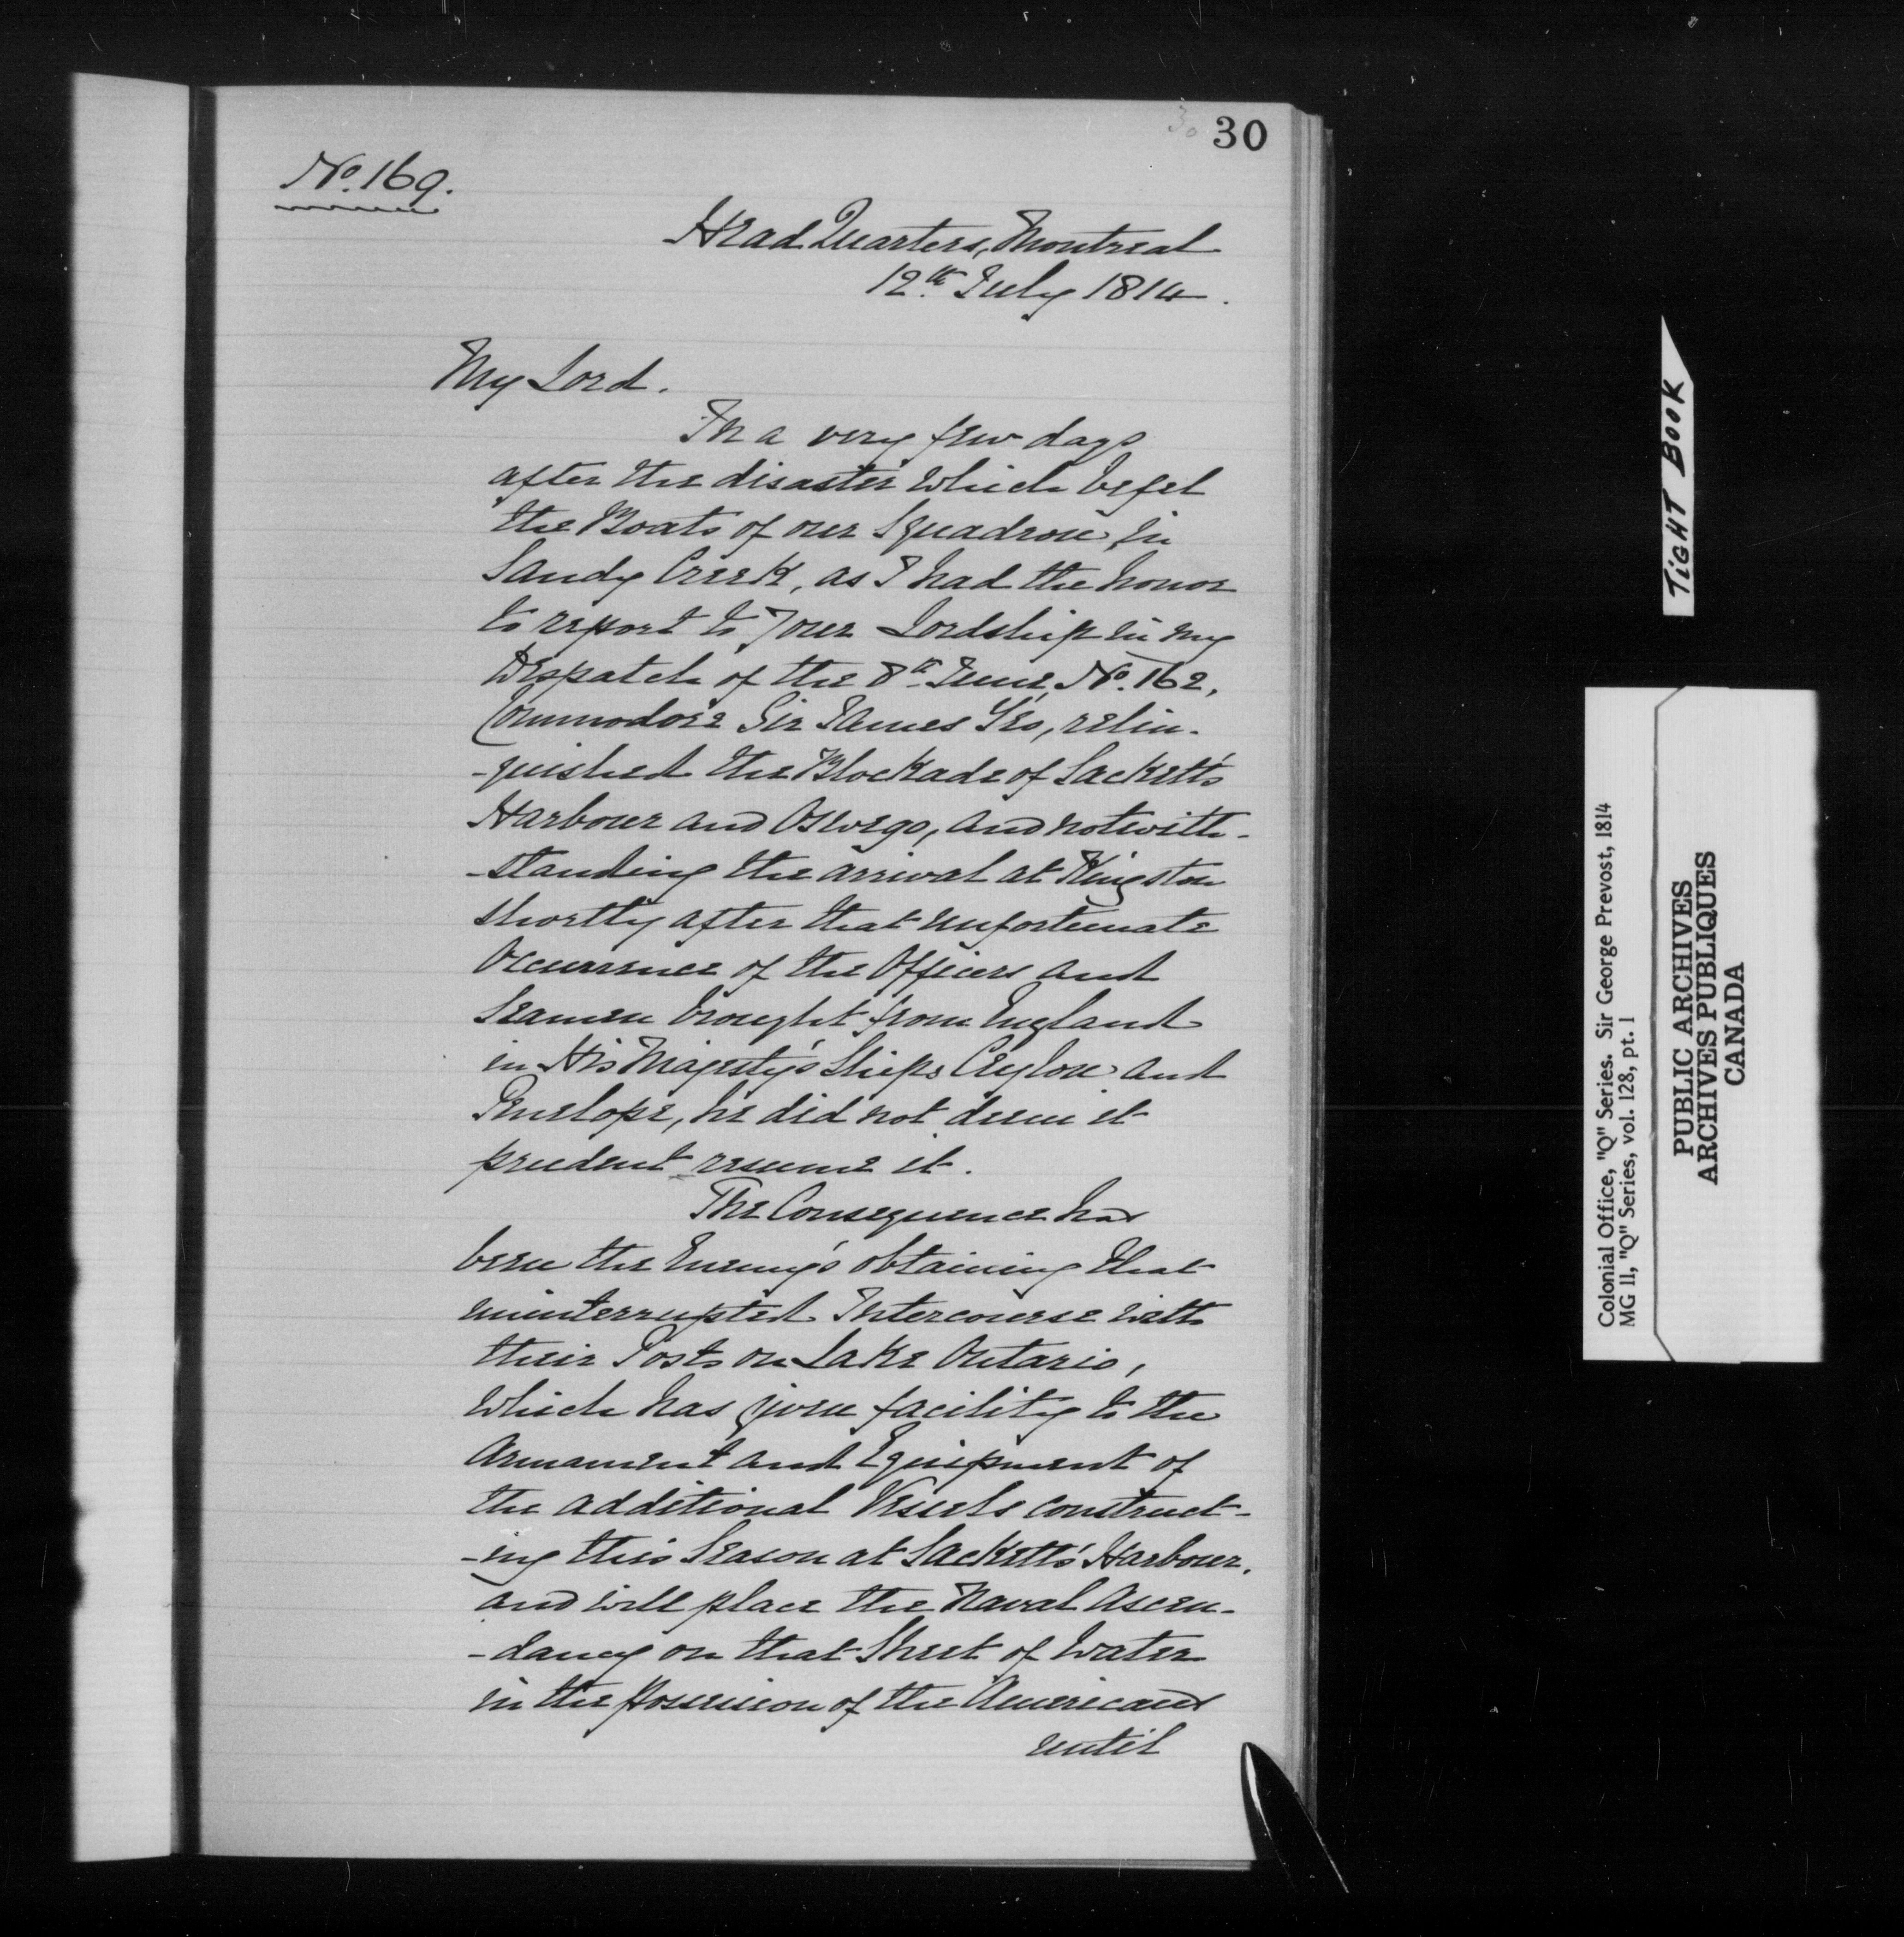 30
30
No. 169.
Head Quarters, Montreal
12th July 1814.
My Lord.
In a very few days
after the disaster which befel
the Boats of our Squadron, in
Sandy Creek, as I had the honor
to report to Your Lordship in my
Despatch of the 8th June, No. 162,
Commodore Sir James Yeo, relin-
-quished the Blockade of Sackett's
Harbour and Oswego, and notwith-
-standing the arrival at Kingston
shortly after that unfortunate
Occurrence of the Officers and
Seamen brought from England
in His Majesty's Ships Ceylon and
Penelope, he did not deem it
prudent resume it.
The Consequence has
been the Enemy's obtaining that
uninterrupted Intercourse with
their Posts on Lake Ontario,
which has given facility to the
Armament and Equipment of
the additional Vessels construct-
-ing this Season at Sackett's Harbour,
and will place the Naval Ascen-
-dancy on that Sheet of Water
in the possession of the Americans
until
TIGHT BOOK
Colonial Office, "Q" Series. Sir George Prevost, 1814
MG 11, "Q" Series, vol. 128, pt. 1
PUBLIC ARCHIVES
ARCHIVES PUBLIQUES
CANADA